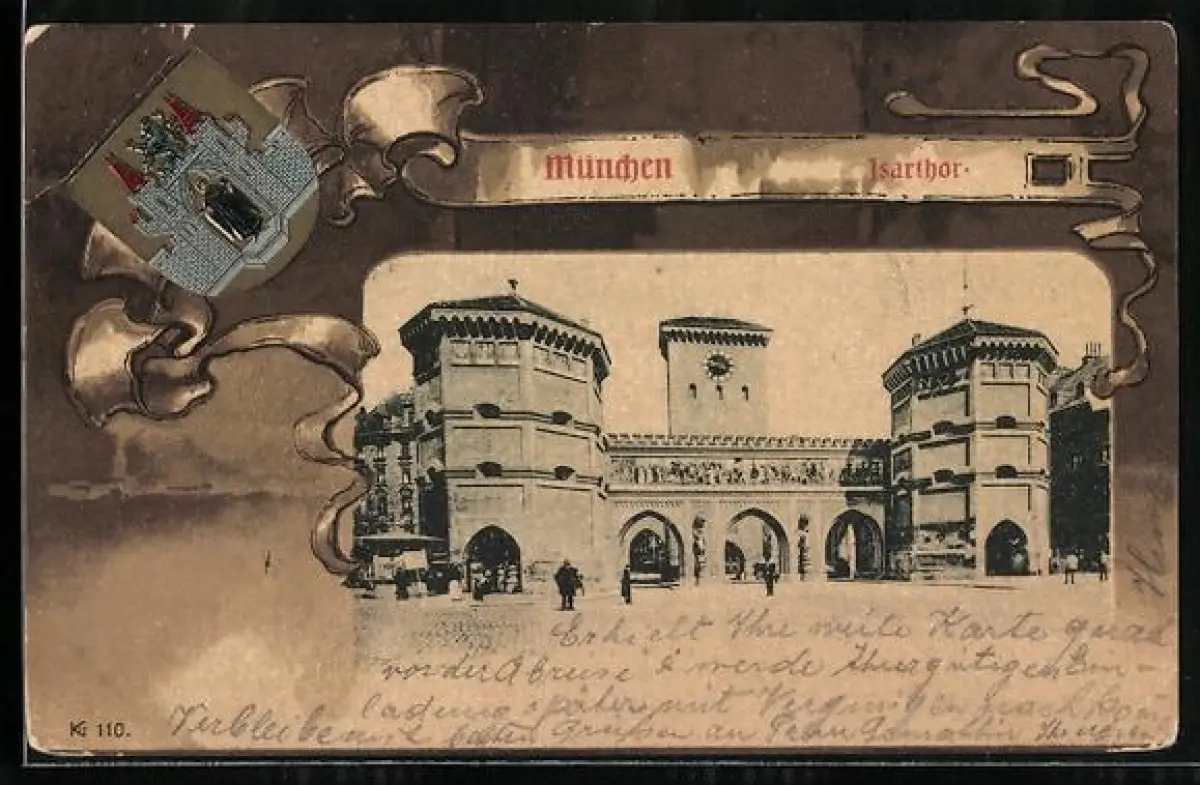 München Isarthor.
Erhielt Ihre weite Karte grad
vor der Abreise & werde Ihrer gütigen Ein-
ladung später mit Vergnügen nach
Verbleibe mit besten Grüssen an Frau Gemahlin
Ki 110.